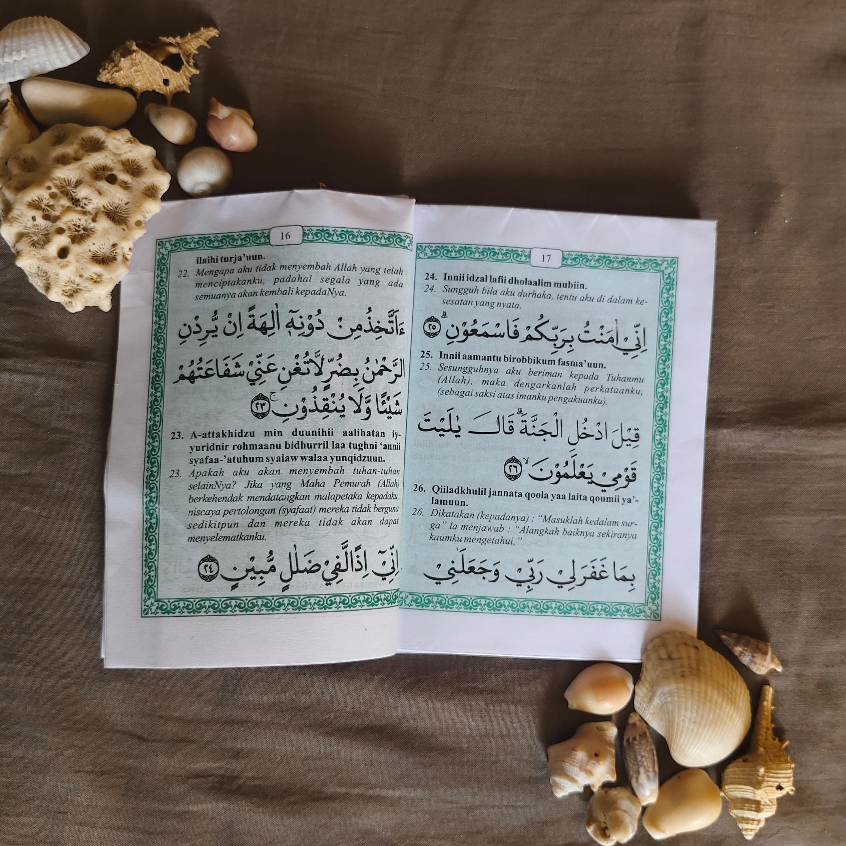 16
ilaihi turja'uun.
22. Mengapa aku tidak menyembah Allah yang telah
menciptakanku, padahal segala yang ada
semuanya akan kembali kepadaNya.
ءَاَتَّخِذُ مِنْ دُوْنِهٖٓ اٰلِهَةً اِنْ يُّرِدْنِ
الرَّحْمٰنُ بِضُرٍّ لَّا تُغْنِ عَنِّيْ شَفَاعَتُهُمْ
شَيْـًٔا وَّلَا يُنْقِذُوْنِۚ ٢٣
23. A-attakhidzu min duunihii aalihatan iy-
yuridnir rohmaanu bidhurril laa tughni 'annii
syafaa-'atuhum syaiaw walaa yunqidzuun.
23. Apakah aku akan menyembah tuhan-tuhan
selainNya? Jika yang Maha Pemurah (Allah)
berkehendak mendatangkan malapetaka kepadaku
niscaya pertolongan (syafaat) mereka tidak berguna
sedikitpun dan mereka tidak akan dapat
menyelematkanku.
اِنِّيْٓ اِذًا لَّفِيْ ضَلٰلٍ مُّبِيْنٍ ٢٤
17
24. Innii idzal lafii dholaalim mubiin.
24. Sungguh bila aku darhaka, tentu aku di dalam ke-
sesatan yang nyata.
اِنِّيْٓ اٰمَنْتُ بِرَبِّكُمْ فَاسْمَعُوْنِۗ ٢٥
25. Innii aamantu birobbikum fasma'uun.
25. Sesungguhnya aku beriman kepada Tuhanmu
(Allah), maka dengarkanlah perkataanku,
(sebagai saksi atas imanku pengakuanku).
قِيْلَ ادْخُلِ الْجَنَّةَۗ قَالَ يٰلَيْتَ
قَوْمِيْ يَعْلَمُوْنَۙ ٢٦
26. Qiiladkhulil jannata qoola yaa laita qoumii ya'-
lamuun.
26. Dikatakan (kepadanya) : "Masuklah kedalam sur-
ga" Ia menjawab : "Alangkah baiknya sekiranya
kaumku mengetahui."
بِمَا غَفَرَ لِيْ رَبِّيْ وَجَعَلَنِيْ